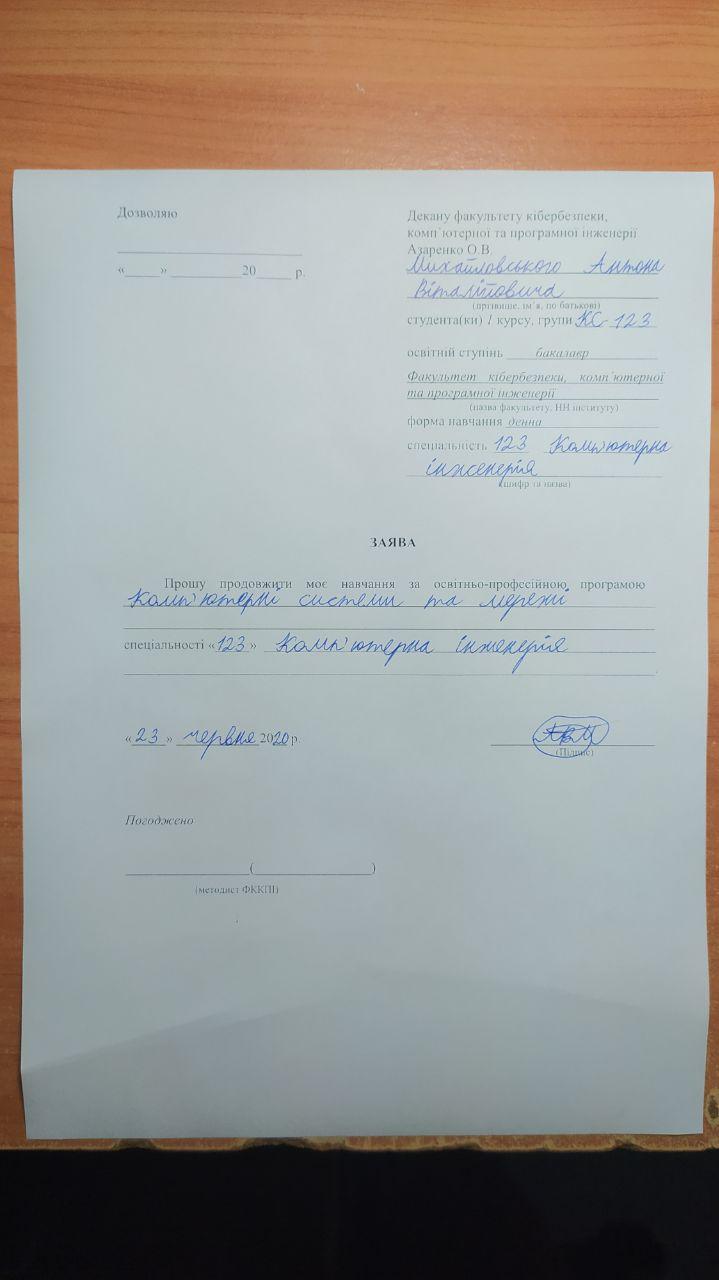 Дозволяю
«_____» __________20_____ р.
Декану факультету кібербезпеки,
комп'ютерної та програмної інженерії
Азаренко О.В.
Михайловського Антона
Віталійовича
(прізвище, ім'я, по батькові)
студента(ки) 1 курсу, групи КС-123
освітній ступінь бакалавр
Факультет кібербезпеки, комп'ютерної
та програмної інженерії
(назва факультету, НН інституту)
форма навчання денна
спеціальність 123 Комп'ютерна
інженерія
(шифр та назва)
ЗАЯВА
Прошу продовжити моє навчання за освітньо-професійною програмою
Комп'ютерні системи та мережі
спеціальності «123» Комп'ютерна інженерія
«23» червня 2020 р.
(Підпис)
Погоджено
___________________(__________________)
(методист ФККПІ)